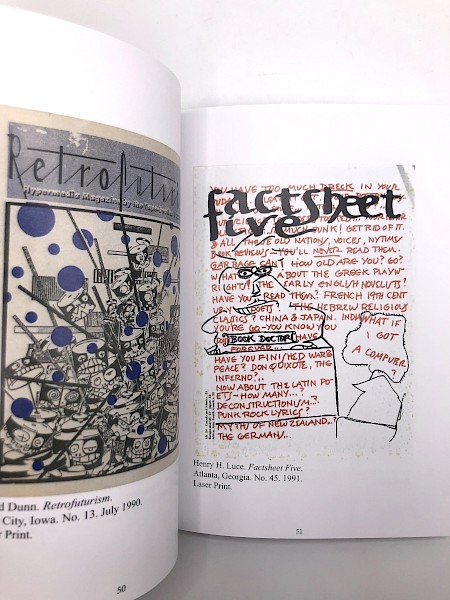 RetroFutu
Hypermedia Magazine by the
d Dunn. Retrofuturism.
City, Iowa. No. 13. July 1990.
Print.
50
YOU HAVE TOO MUCH DRECK IN YOUR
factsheet
five
MUCH JUNK! GET RID OF IT.
& ALL THOSE OLD NATION, VOICES, NYTIMES
BOOK REVIEWS - YOU'LL NEVER READ THEM.
GARBAGE CAN! HOW OLD ARE YOU? 60?
WHAT ABOUT THE GREEK PLAYW-
RIGHTS? THE EARLY ENGLISH NOVELISTS!
HAVE YOU READ THEM? FRENCH 19TH CENT
URY POETS! THE HEBREW RELIGIOUS
CLASSICS? CHINA & JAPAN. INDIA
YOU'RE 60 - YOU KNOW YOU
BOOK DOCTOR HAVE
FOREVER...
HAVE YOU FINISHED WAR &
PEACE? DON QUIXOTE, THE
INFERNO?..
NOW ABOUT THE LATIN PO-
ETS - HOW MANY...?
DECONSTRUCTIONISM...?
PUNK ROCK LYRICS?
MYTHS OF NEW ZEALAND..?
THE GERMANS...
WHAT IF
I GOT
A COMPUTER
Henry H. Luce. Factsheet Five.
Atlanta, Georgia. No. 45. 1991.
Laser Print.
51